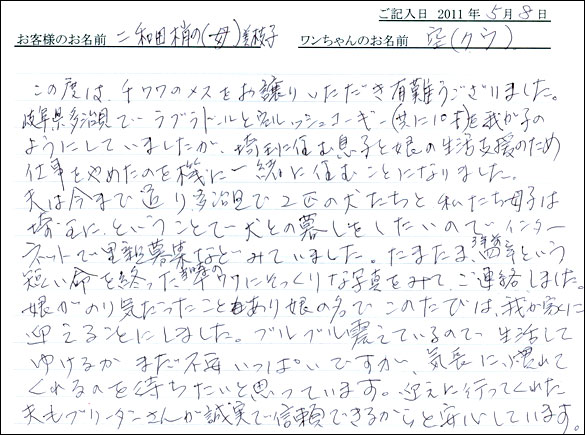 ご記入日 2011年5月8日
お客様のお名前 二和田梢の(母)美枝子 ワンちゃんのお名前 空(クウ)
この度は、チワワのメスをお譲りいただき有難うございました。
岐阜県多治見で ラブラドールとウェルッシュコーギー(共に10才)を我が子の
ようにしていましたが、埼玉に住む息子と娘の生活支援のため
仕事をやめたのを機に一緒に住むことになりました。
夫は今まで通り多治見で2匹の犬たちと 私たち母子は
埼玉に、ということで犬との暮しをしたいのでインター
ネットで里親募集などみていました。たまたま、という
短い命を終ったのクウにそっくりな写真をみて、ご連絡しました。
娘がのり気だったこともあり娘の名で このたびは、我が家に
迎えることにしました。ブルブル震えているので 生活して
ゆけるか まだ不安いっぱいですが、気長に、慣れて
くれるのを待ちたいと思っています。迎えに行ってくれた
夫もブリーダーさんが誠実で信頼できるからと安心しています。